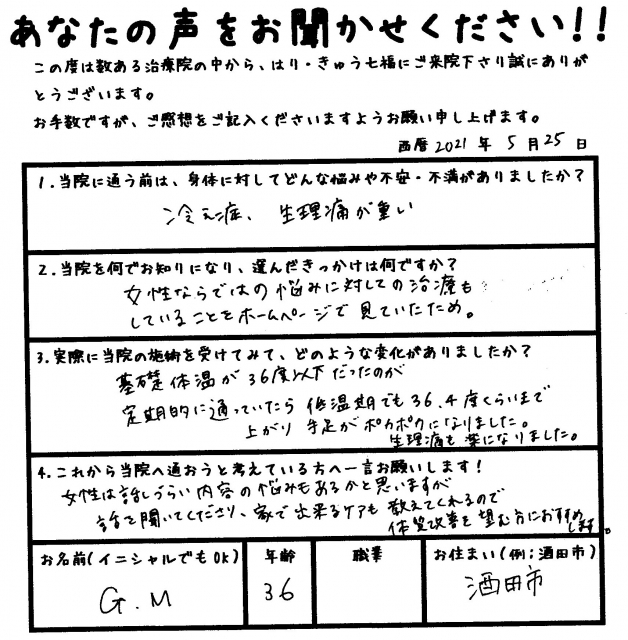 あなたの声をお聞かせください!!
この度は数ある治療院の中から、はり・きゅう七福にご来院下さり誠にありが
とうございます。
お手数ですが、ご感想をご記入くださいますようお願い申し上げます。
西暦 2021 年 5 月 25 日
1.当院に通う前は、身体に対してどんな悩みや不安・不満がありましたか?
冷え症、生理痛が重い
2.当院を何でお知りになり、選んだきっかけは何ですか?
女性ならではの悩みに対しての治療も
していることをホームページで見ていたため。
3.実際に当院の施術を受けてみて、どのような変化がありましたか?
基礎体温が36度以下だったのが
定期的に通っていたら低温期でも36.4度くらいまで
上がり手足がポカポカになりました。
生理痛も楽になりました。
4.これから当院へ通おうと考えている方へ一言お願いします!
女性は話しづらい内容の悩みもあるかと思いますが
話を聞いてくださり、家で出来るケアも教えてくれるので
体質改善を望む方におすすめ
します。
お名前(イニシャルでもOK) 年齢 職業 お住まい(例;酒田市)
G.M 36 酒田市